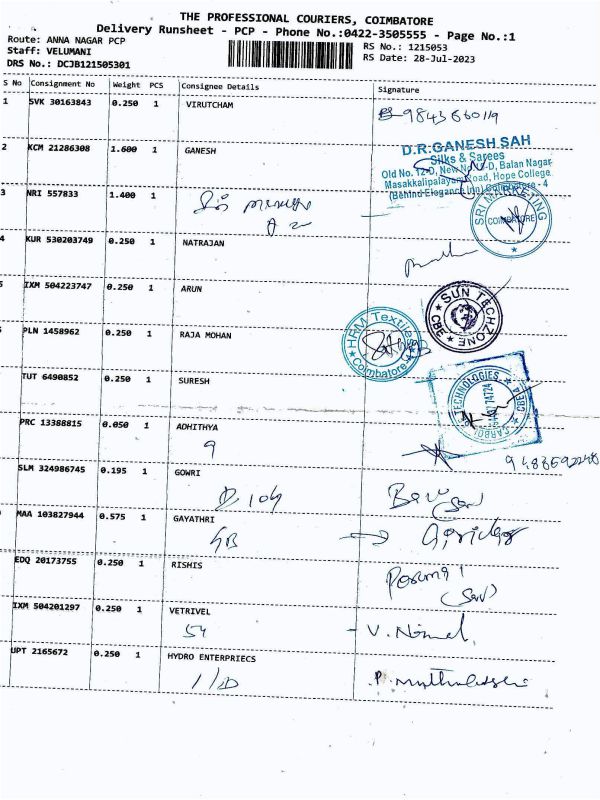 THE PROFESSIONAL COURIERS, COIMBATORE
Delivery Runsheet - PCP - Phone No.:0422-3505555 - Page No.:1
Route: ANNA NAGAR PCP
Staff: VELUMANI
DRS No.: DCJB121505301
RS No.: 1215053
RS Date: 28-Jul-2023
S No Consignment No Weight PCS Consignee Details Signature
1 SVK 30163843 0.250 1 VIRUTCHAM
2 KCM 21286308 1.600 1 GANESH
D.R.GANESH SAH
Silks & Sarees
Old No. 12-D, New No. -D, Balan Nagar
Masakkalipalayam Road, Hope College
(Behind Elegance Inn) Coimbatore - 4
3 NRI 557833 1.400 1
SRI MARKETING
COIMBATORE
4 KUR 530203749 0.250 1 NATRAJAN
IXM 504223747 0.250 1 ARUN
SUN TECHZONE
CBE
PLN 1458962 0.250 1 RAJA MOHAN
HRM Textile
Coimbatore
TUT 6490852 0.250 1 SURESH
TECHNOLOGIES
CBE-4
PRC 13388815 0.050 1 ADHITHYA
9
SLM 324986745 0.195 1 GOWRI
D 104
MAA 103827944 0.575 1 GAYATHRI
EDQ 20173755 0.250 1 RISHIS
IXM 504201297 0.250 1 VETRIVEL
54 - V. Nirmal
UPT 2165672 0.250 1 HYDRO ENTERPRIECS